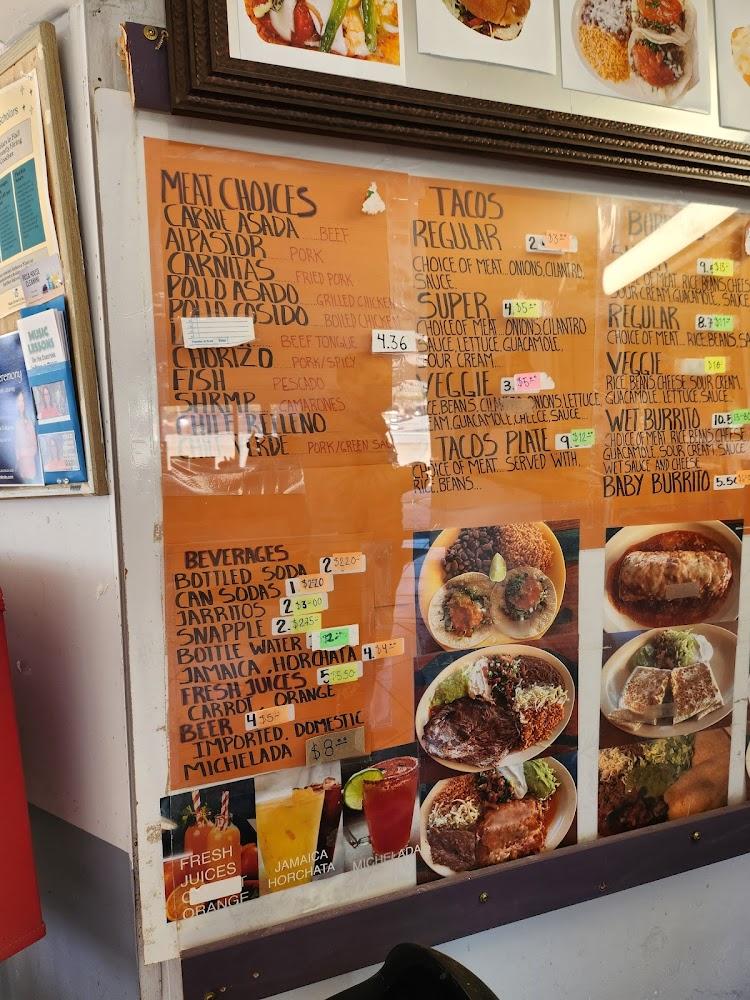 MUSIC
LESSONS
MEAT CHOICES
CARNE ASADA ....BEEF
ALPASTOR ....PORK
CARNITAS ...FRIED PORK
POLLO ASADO ...GRILLED CHICKEN
POLLO COSIDO ...BOILED CHICKEN
BEEF TONGUE 4.36
CHORIZO PORK/SPICY
FISH PESCADO
SHRMP CAMARONES
CHILE RELLENO
PORK/GREEN
BEVERAGES
BOTTLED SODA 2
CAN SODAS 1
JARRITOS 2 $3.00
SNAPPLE 2.
BOTTLE WATER
JAMAICA, HORCHATA 4.
FRESH JUICES 5
CARROT, ORANGE
BEER 4
IMPORTED, DOMESTIC
MICHELADA $8.00
TACOS
REGULAR 2.
CHOICE OF MEAT...ONIONS,CILANTRO,
SAUCE.
SUPER 4.
CHOICE OF MEAT...ONIONS,CILANTRO
SAUCE, LETTUCE, GUACAMOLE,
SOUR CREAM...
VEGGIE 3.
RICE, BEANS, ONIONS, LETTUCE
GUACAMOLE, SAUCE...
TACOS PLATE 9.
CHOICE OF MEAT... SERVED WITH,
RICE, BEANS...
9.
MEAT, RICE, BEANS, CHEESE
SOUR CREAM, GUACAMOLE, SAUCE
REGULAR 8.
CHOICE OF MEAT, RICE, BEANS
VEGGIE
RICE, BEANS, CHEESE, SOUR CREAM,
GUACAMOLE, LETTUCE, SAUCE..
WET BURRITO 10.5
CHOICE OF MEAT, RICE, BEANS, CHEESE
GUACAMOLE, SOUR CREAM, SAUCE
WET SAUCE AND CHEESE
BABY BURRITO 5.50
FRESH
JUICES
ORANGE
JAMAICA
HORCHATA
MICHELADA